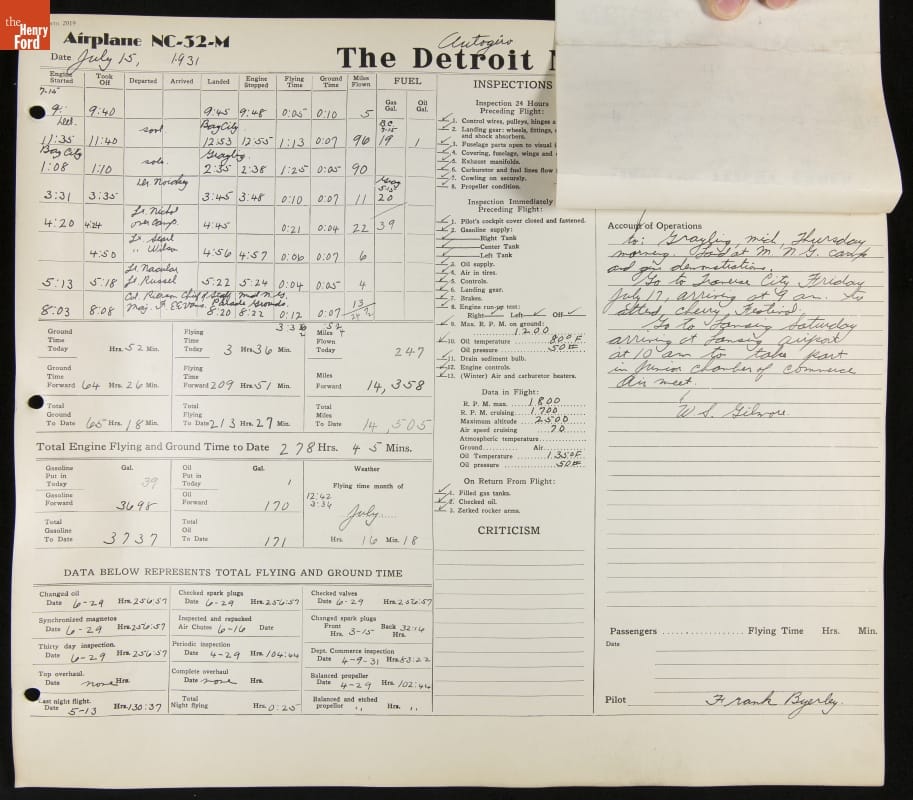 the
Henry
Ford
2019
Airplane NC-32-M
Date July 15, 1931
Autogiro
The Detroit
Engine Started
Took Off
Departed
Arrived
Landed
Engine Stopped
Flying Time
Ground Time
Miles Flown
FUEL
Gas Gal.
Oil Gal.
7-15
9:40 9:45 9:48 0:05 0:10 5
Bay City
11:35 11:40 solo 12:53 12:55 1:13 0:07 96 19 1
Bay City Grayling
1:08 1:10 solo 2:35 2:38 1:25 0:05 90
3:31 3:35 3:45 3:48 0:10 0:07 11 20
4:20 4:24 over camp 4:45 0:21 0:04 22 39
4:50 " Wilson 4:56 4:57 0:06 0:07 6
5:13 5:18 Lt. Russel 5:22 5:24 0:04 0:05 4
8:03 8:08 Parade Grounds 8:20 8:22 0:12 0:07 13
Ground Time Today Hrs. 52 Min.
Flying Time Today 3 Hrs. 36 Min.
Miles Flown Today 247
Ground Time Forward 64 Hrs. 26 Min.
Flying Time Forward 209 Hrs. 51 Min.
Miles Forward 14,358
Total Ground To Date 65 Hrs. 18 Min.
Total Flying To Date 213 Hrs. 27 Min.
Total Miles To Date 14,505
Total Engine Flying and Ground Time to Date 278 Hrs. 45 Mins.
Gasoline Put in Today Gal. 39
Oil Put in Today Gal. 1
Weather
Flying time month of
Gasoline Forward 3698
Oil Forward 170
12:42
3:36
July
Total Gasoline To Date 3737
Total Oil To Date 171
Hrs. 16 Min. 18
DATA BELOW REPRESENTS TOTAL FLYING AND GROUND TIME
Changed oil Date 6-29 Hrs. 256:57
Checked spark plugs Date 6-29 Hrs. 256:57
Checked valves Date 6-29 Hrs. 256:57
Synchronized magnetos Date 6-29 Hrs. 256:57
Inspected and repacked Air Chutes 6-16 Date
Changed spark plugs Front Hrs. 3-15 Back Hrs. 32:16
Thirty day inspection. Date 6-29 Hrs. 256:57
Periodic inspection Date 4-29 Hrs. 104:44
Dept. Commerce inspection Date 4-9-31 Hrs. 83:22
Top overhaul. Date none Hrs.
Complete overhaul Date none Hrs.
Balanced propeller Date 4-29 Hrs. 102:44
Last night flight. Date 5-13 Hrs. 130:37
Total Night flying Hrs. 0:25
Balanced and etched propellor " Hrs. "
INSPECTIONS
Inspection 24 Hours
Preceding Flight:
1. Control wires, pulleys, hinges
2. Landing gear: wheels, fittings,
and shock absorbers.
3. Fuselage parts open to visual
4. Covering, fuselage, wings and
5. Exhaust manifolds.
6. Carburetor and fuel lines flow
7. Cowling on securely.
8. Propeller condition.
Inspection Immediately
Preceding Flight:
1. Pilot's cockpit cover closed and fastened.
2. Gasoline supply:
Right Tank
Center Tank
Left Tank
3. Oil supply.
4. Air in tires.
5. Controls.
6. Landing gear.
7. Brakes.
8. Engine run-up test:
Right Left Off
9. Max. R. P. M. on ground:
1200
10. Oil temperature 80°F
Oil pressure 50#
11. Drain sediment bulb.
12. Engine controls.
13. (Winter) Air and carburetor heaters.
Data in Flight:
R. P. M. max. 1800
R. P. M. cruising 1700
Maximum altitude 2500
Air speed cruising 70
Atmospheric temperature
Ground Air
Oil Temperature 135°F
Oil pressure 50#
On Return From Flight:
1. Filled gas tanks.
2. Checked oil.
3. Zerked rocker arms.
CRITICISM
Account of Operations
to: Grayling, mich, Thursday
morning. Land at M. N. G. camp
and give demonstrations.
Go to Traverse City Friday
July 17, arriving at 9 am. to
attend Cherry Festival.
Go to Lansing Saturday
arriving at Lansing airport
at 10 am to take part
in Junior Chamber of Commerce
Air meet.
W. S. Gilmore
Passengers Flying Time Hrs. Min.
Date
Pilot Frank Byerley.